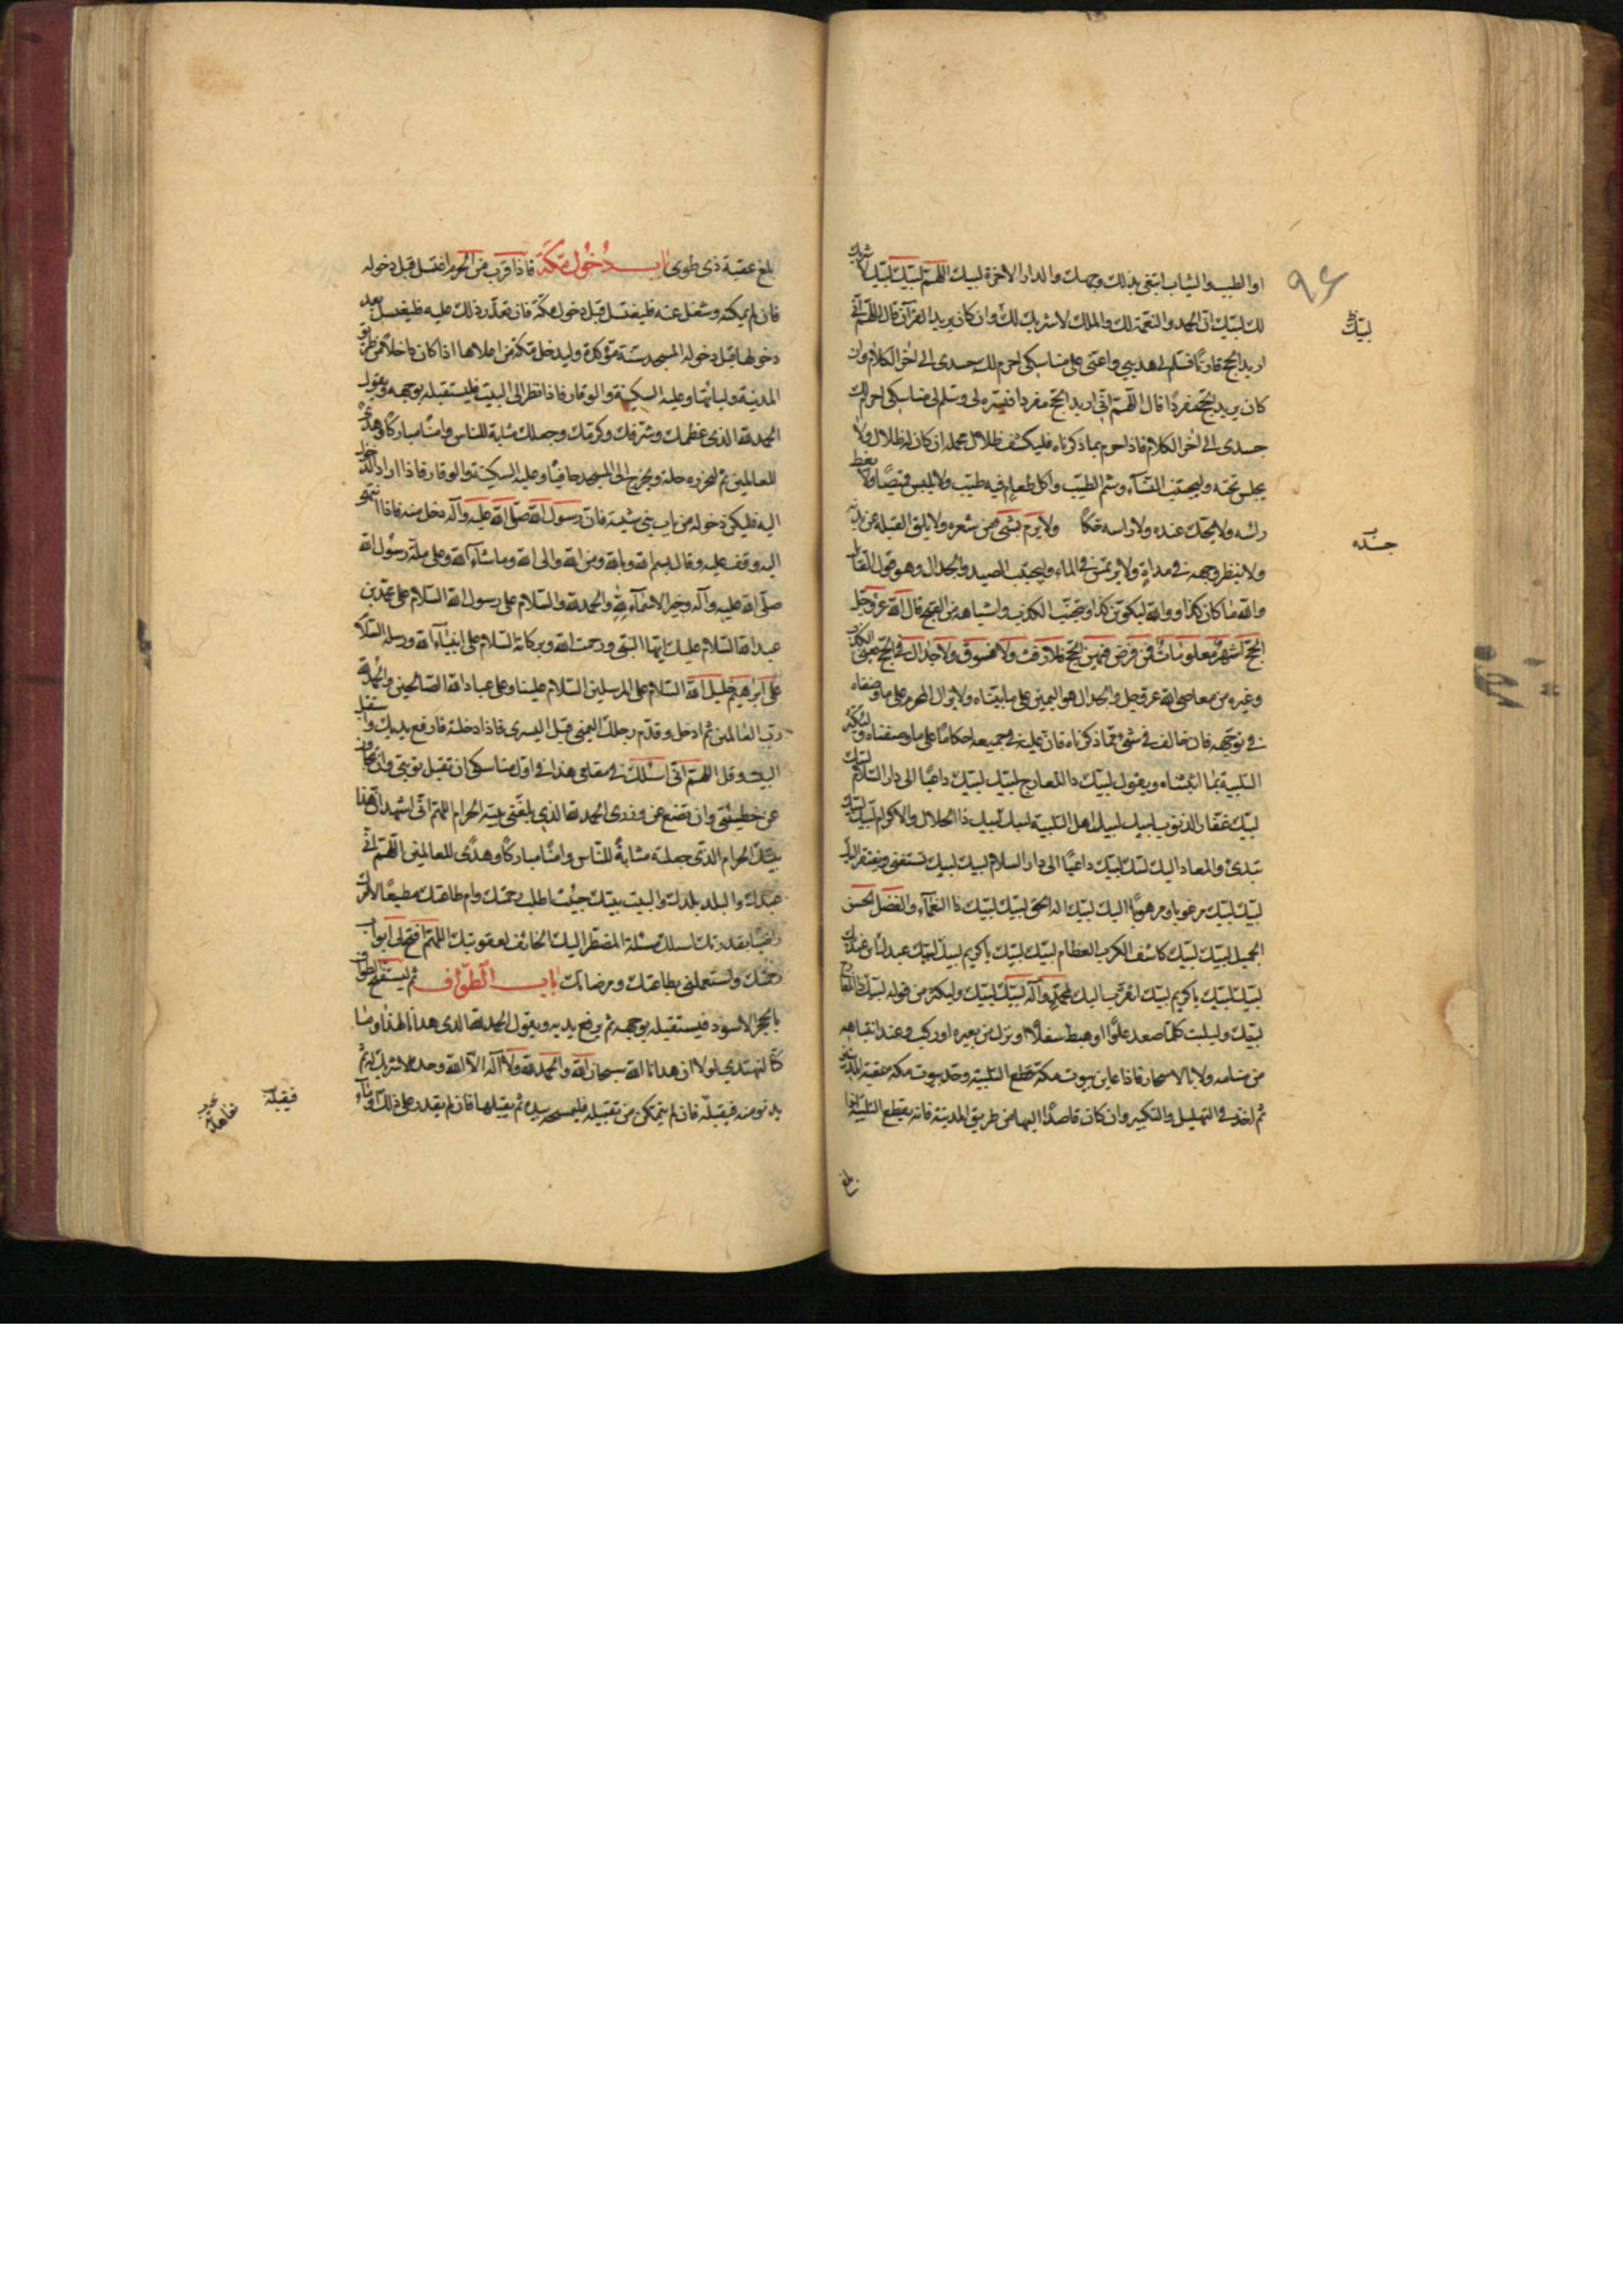 او الطيب والثياب ابتغى بذلك وجهك والدار الآخرة لبيك اللهم لبيك لبيك لا شريك
لك لبيك ان الحمد والنعمة لك والملك لا شريك لك وان كان يريد القران قال اللهم انى
اريد الحج قارنا فسلم لى هديى واعنى على مناسكى احرم لك جسدى الى آخر الكلام وان
كان يريد الحج مفردا قال اللهم انى اريد الحج مفردا فيسره لى وسلم لى مناسكى احرم لك
جسدى الى آخر الكلام فاذا احرم بما ذكرناه فليكشف ظلال محمله ان كان له ظلال ولا
يجلس تحته وليجتنب النساء وشم الطيب واكل طعام فيه طيب ولا يلبس قميصا ولا يغط
رأسه ولا يحك جلده ولا رأسه حكا ولا يرم بشىء من شعره ولا يلق القملة عن بدنه
ولا ينظر وجهه فى مرآة ولا يرتمس فى الماء وليجتنب الصيد والجدال وهو قول القائل
والله ما كان كذا ووالله ليكونن كذا ويتجنب الكذب واشباهه من القبيح قال الله عز وجل
الحج اشهر معلومات فمن فرض فيهن الحج فلا رفث ولا فسوق ولا جدال فى الحج يعنى الكذب
وغيره من معاصى الله عز وجل والجدال هو اليمين على ما بيناه ولا يزال المحرم على ما وصفناه
فى توجهه فان خالف فى شىء مما ذكرناه فان عليه فى جميعه احكاما على ما وصفناه وليكثر
التلبية بما اثبتناه ويقول لبيك ذا المعارج لبيك لبيك داعيا الى دار السلام لبيك
لبيك غفار الذنوب لبيك لبيك اهل التلبية لبيك لبيك ذا الجلال والاكرام لبيك لبيك
تبدئ والمعاد اليك لبيك لبيك داعيا الى دار السلام لبيك لبيك تستغنى ويفتقر اليك
لبيك لبيك مرغوبا ومرهوبا اليك لبيك اله الحق لبيك لبيك ذا النعماء والفضل الحسن
الجميل لبيك لبيك كاشف الكرب العظام لبيك لبيك يا كريم لبيك لبيك عبدك ابن عبديك
لبيك لبيك يا كريم لبيك اتقرب اليك بمحمد وآله لبيك لبيك وليكثر من قوله لبيك ذا المعارج
لبيك وليلب كلما صعد علوا او هبط سفلا او نزل من بعيره او ركب وعند انتباهه
من منامه وبالاسحار فاذا عاين بيوت مكة قطع التلبية وحد بيوت مكة عقبة المدنيين
ثم اخذ فى التهليل والتكبير وان كان قاصدا اليها من طريق المدينة فانه يقطع التلبية اذا
لبيك
جسده
٩٤
بلغ
بلغ عقبة ذى طوى باب دخول مكة فاذا قرب من الحرم اغتسل قبل دخوله
فان لم يمكنه وشغل عنه فليغتسل قبل دخول مكة فان تعذر ذلك عليه فليغتسل بعد
دخولها قبل دخوله المسجد سنة مؤكدة وليدخل مكة من اعلاها اذا كان داخلا من طريق
المدينة وليأتها وعليه السكينة والوقار فاذا نظر الى البيت فليستقبله بوجهه ويقول
الحمد لله الذى عظمك وشرفك وكرمك وجعلك مثابة للناس وامنا مباركا وهدى
للعالمين ثم ليحرز رحله ويخرج الى المسجد حافيا وعليه السكينة والوقار فاذا اراد الدخول
اليه فليكن دخوله من باب بنى شيبة فان رسول الله صلى الله عليه وآله دخل منه فاذا انتهى
اليه وقف عليه وقال بسم الله وبالله ومن الله والى الله وما شاء الله وعلى ملة رسول الله
صلى الله عليه وآله وخير الاسماء لله والحمد لله والسلام على رسول الله السلام على محمد بن
عبد الله السلام عليك ايها النبى ورحمت الله وبركاته السلام على انبياء الله ورسله السلام
على ابراهيم خليل الله السلام على المرسلين السلام علينا وعلى عباد الله الصالحين والحمد لله
رب العالمين ثم ادخل وقدم رجلك اليمنى قبل اليسرى فاذا دخلته فارفع يديك واستقبل
البيت وقل اللهم انى اسئلك فى مقامى هذا فى اول مناسكى ان تقبل توبتى وان تجاوز
عن خطيئتى وان تضع عنى وزرى الحمد لله الذى بلغنى بيته الحرام اللهم انى اشهد ان هذا
بيتك الحرام الذى جعلته مثابة للناس وامنا مباركا وهدى للعالمين اللهم انى
عبدك والبلد بلدك والبيت بيتك جئت اطلب رحمتك وأم طاعتك مطيعا لامرك
راضيا بقدرتك اسئلك مسئلة المضطر اليك الخائف لعقوبتك اللهم افتح لى ابواب
رحمتك واستعملنى بطاعتك ومرضاتك باب الطواف ثم ليستفتح الطواف
بالحجر الاسود فيستقبله بوجهه ثم يرفع يديه ويقول الحمد لله الذى هدانا لهذا وما
كنا لنهتدى لولا ان هدانا الله سبحان الله والحمد لله ولا اله الا الله وحده لا شريك له ثم
يدنو منه فيقبله فان لم يتمكن من تقبيله فليمسحه بيده ثم يقبلها فان لم يقدر على ذلك اومأ
فيقبله